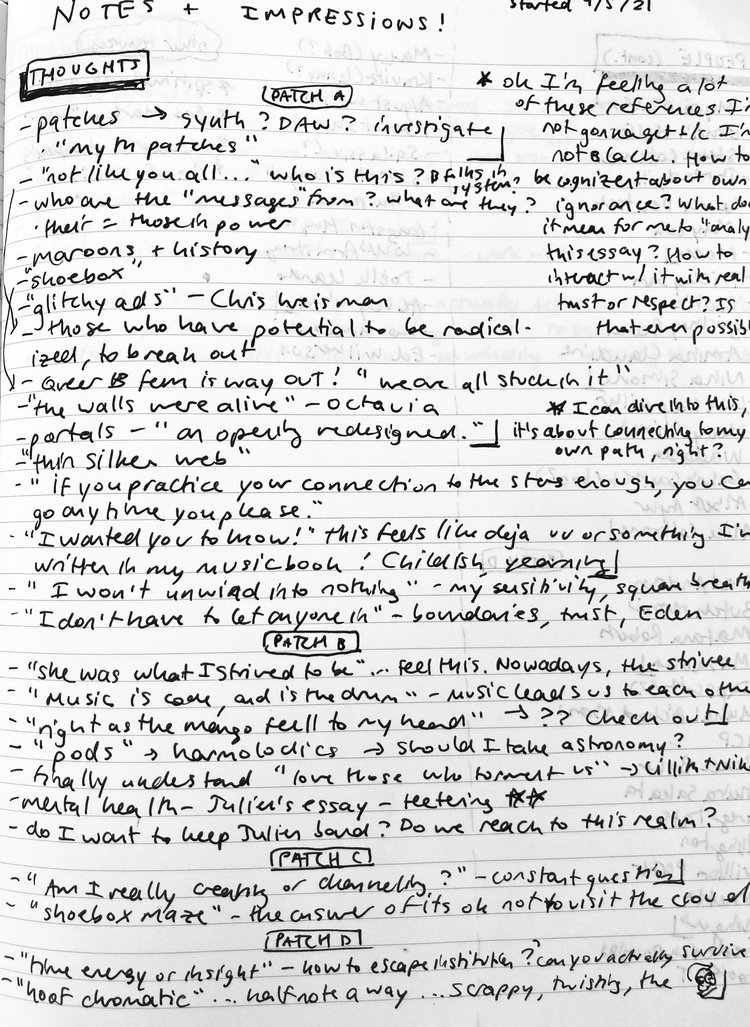 NOTES + IMPRESSIONS!
started 9/5/21
THOUGHTS
PATCH A
- patches → synth? DAW? investigate
· "myth patches"
- "not like you all..." who is this? B folks in system?
- who are the "messages" from? what are they?
· their = those in power
- maroons, + history
- "shoebox"
- "glitchy ads" - Chris Weisman
- those who have potential to be radical-
ized, to break out
- career B fem is way out! "we are all stuck in it"
- "the walls were alive" - octavia
- portals - "an opening redesigned."
- "thin silken web"
- "if you practice your connection to the stars enough, you can
go any time you please."
- "I wanted you to know!" this feels like deja vu or something I'm
written in my music book! Childish, yearning
- "I won't unwind into nothing" - my sensitivity, square breath
- "I don't have to let anyone in" - boundaries, trust, Eden
* oh I'm feeling a lot
of these references I'm
not gonna get b/c I'm
not Black. How to
be cognizent about own
ignorance? What does
it mean for me to "analy
this essay? How to
interact w/ it with real
trust or respect? Is
that even possib
* I can dive into this,
it's about connecting to my
own path, right?
PATCH B
- "she was what I strived to be"... feel this. Nowadays, the strivee
- "Music is code, and is the drum" - music leads us to each othe
- "right as the mango fell to my head" → ?? check out!
- "pods" → harmolodics → should I take astronomy?
- finally understand "love those who torment us" → Lillith + Nik
- mental health - Julien's essay - teetering **
- do I want to keep Julien band? Do we reach to this realm?
PATCH C
- "Am I really creating or channeling?" - constant question
- "shoebox maze" - the answer of its ok not to visit the cloud
PATCH D
- "time energy or insight" - how to escape institution? can you actually survive
- "hoof chromatic"... half note away... scrappy, twisting, the